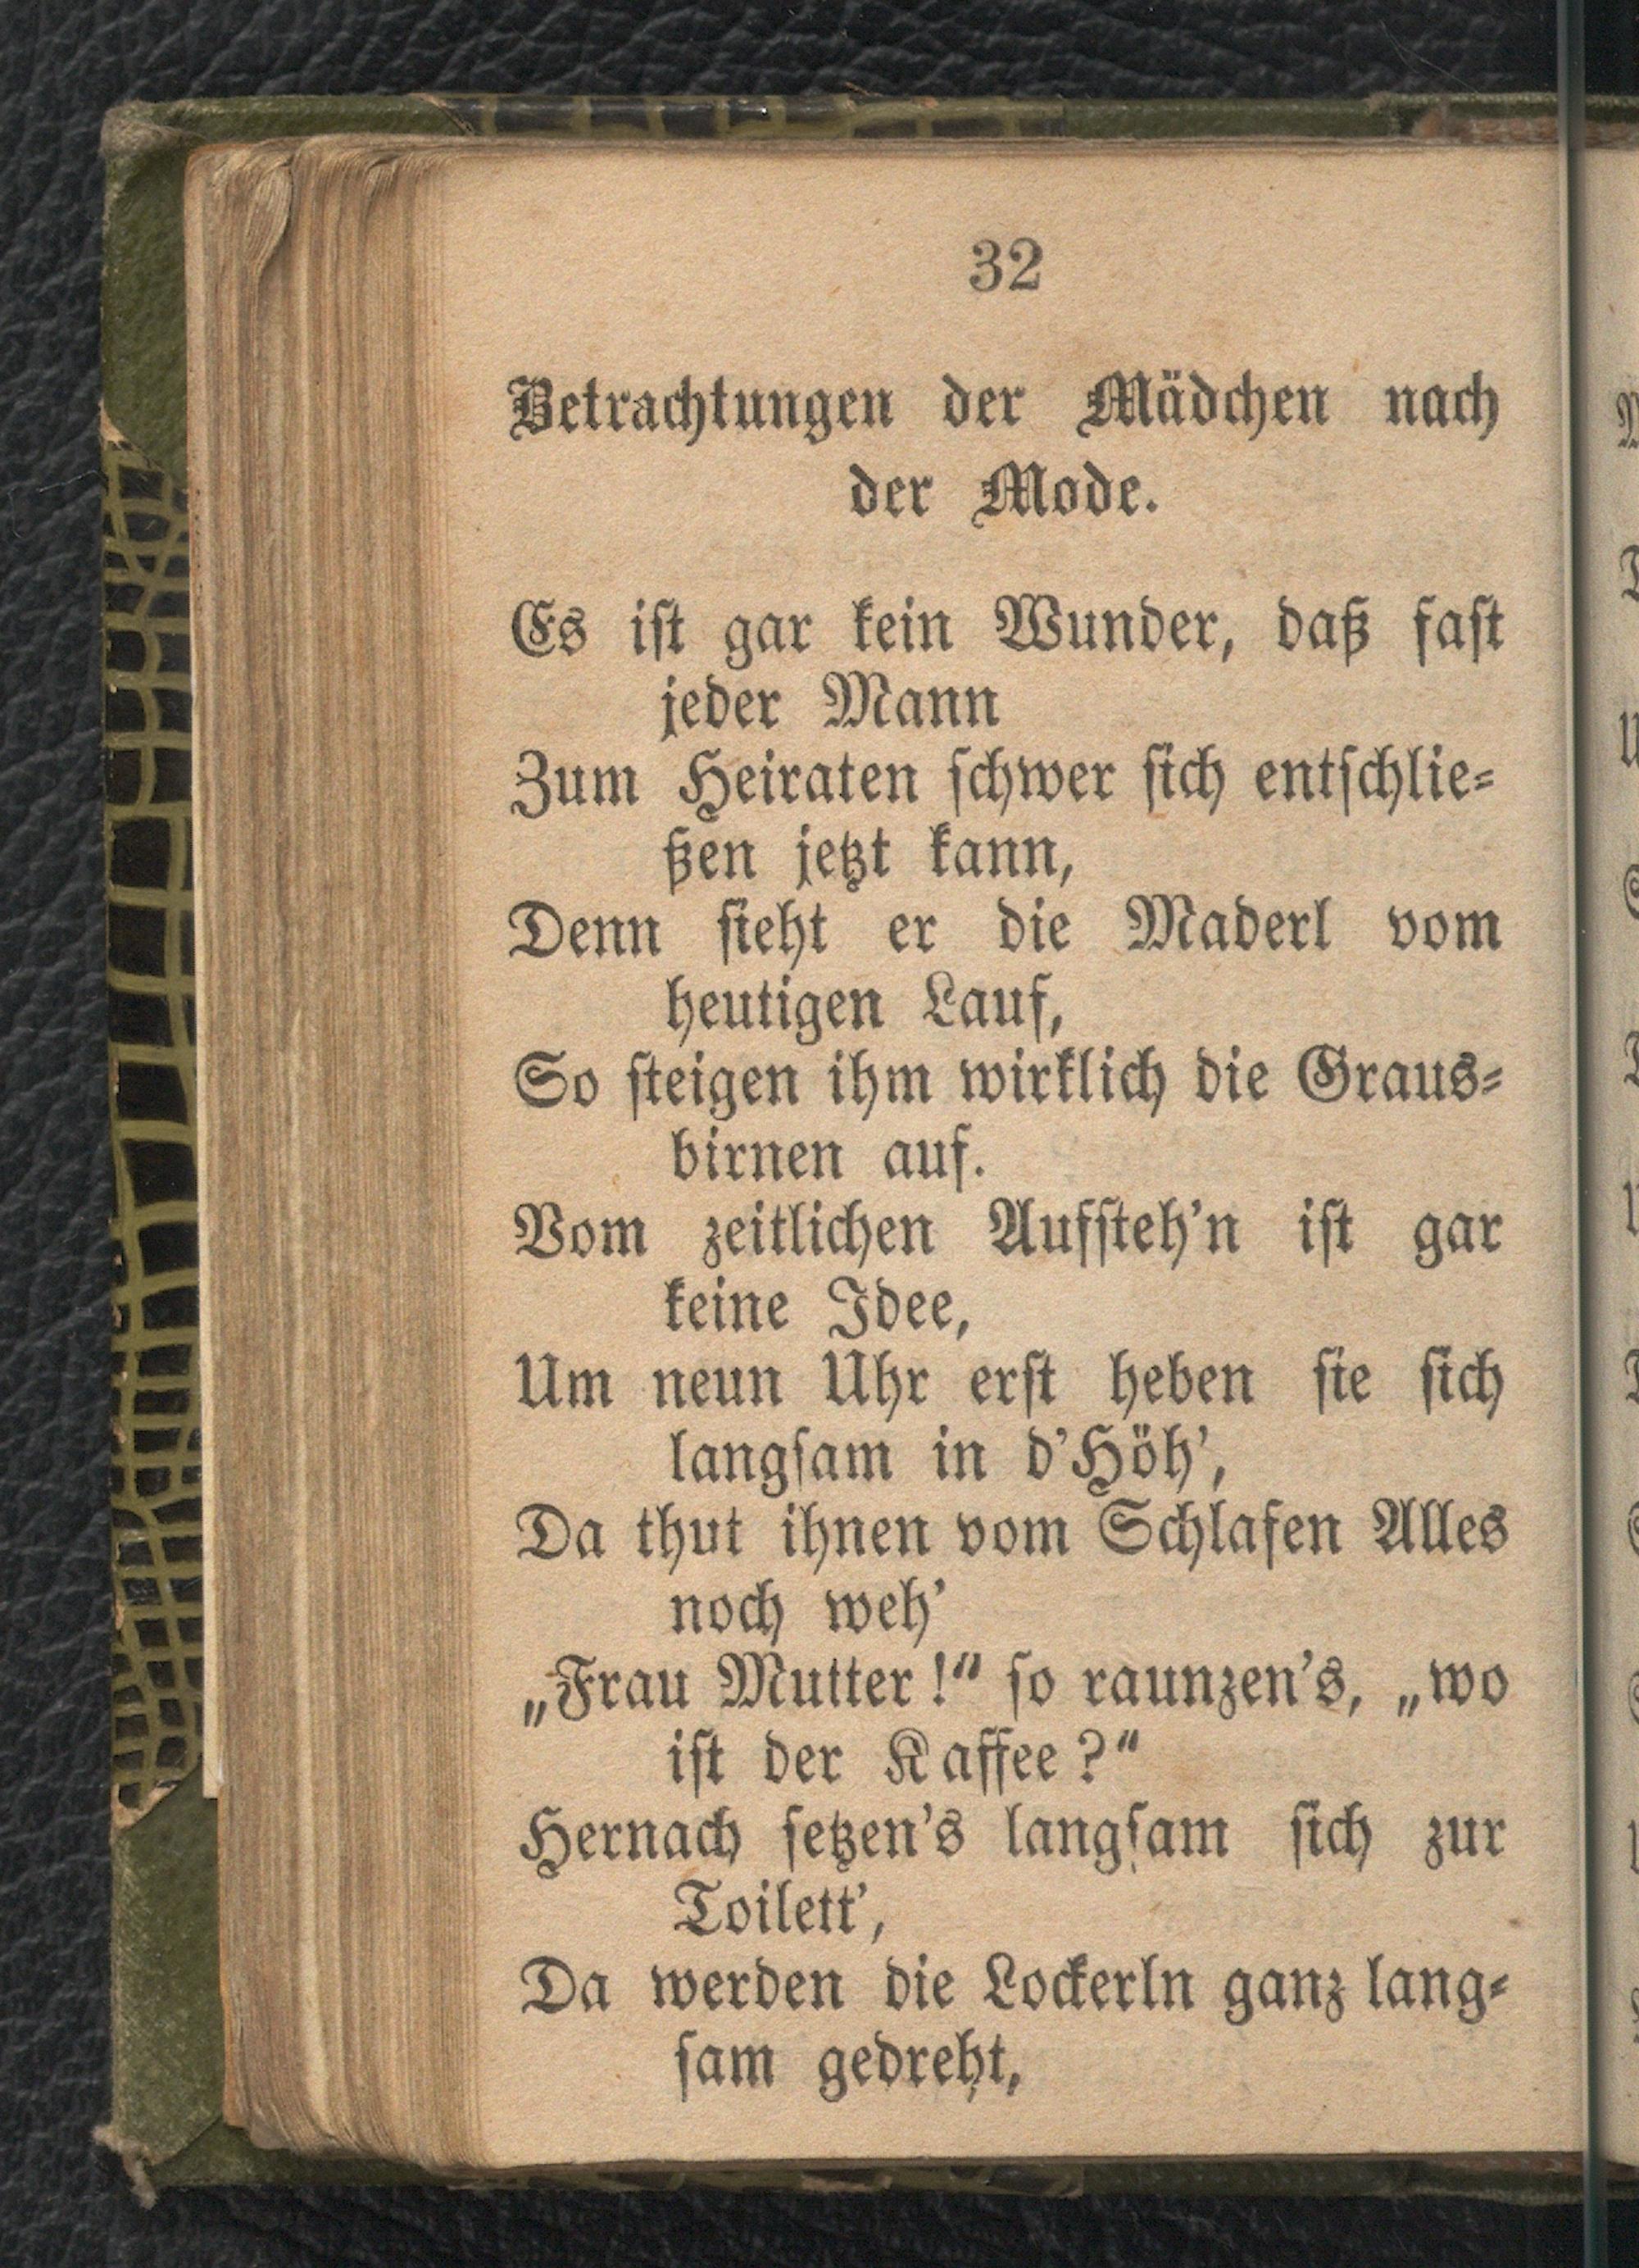 32
Betrachtungen der Mädchen nach
der Mode.
Es iſt gar kein Wunder, daß faſt
jeder Mann
Zum Heiraten ſchwer ſich entſchlie⸗
ßen jetzt kann,
Denn ſieht er die Maderl vom
heutigen Lauf,
So ſteigen ihm wirklich die Graus⸗
birnen auf.
Vom zeitlichen Aufſteh’n iſt gar
keine Idee,
Um neun Uhr erſt heben ſie ſich
langſam in d’Höh’,
Da thut ihnen vom Schlafen Alles
noch weh’
„Frau Mutter!“ ſo raunzen’s, „wo
iſt der Kaffee?“
Hernach ſetzen’s langſam ſich zur
Toilett’,
Da werden die Lockerln ganz lang⸗
ſam gedreht,